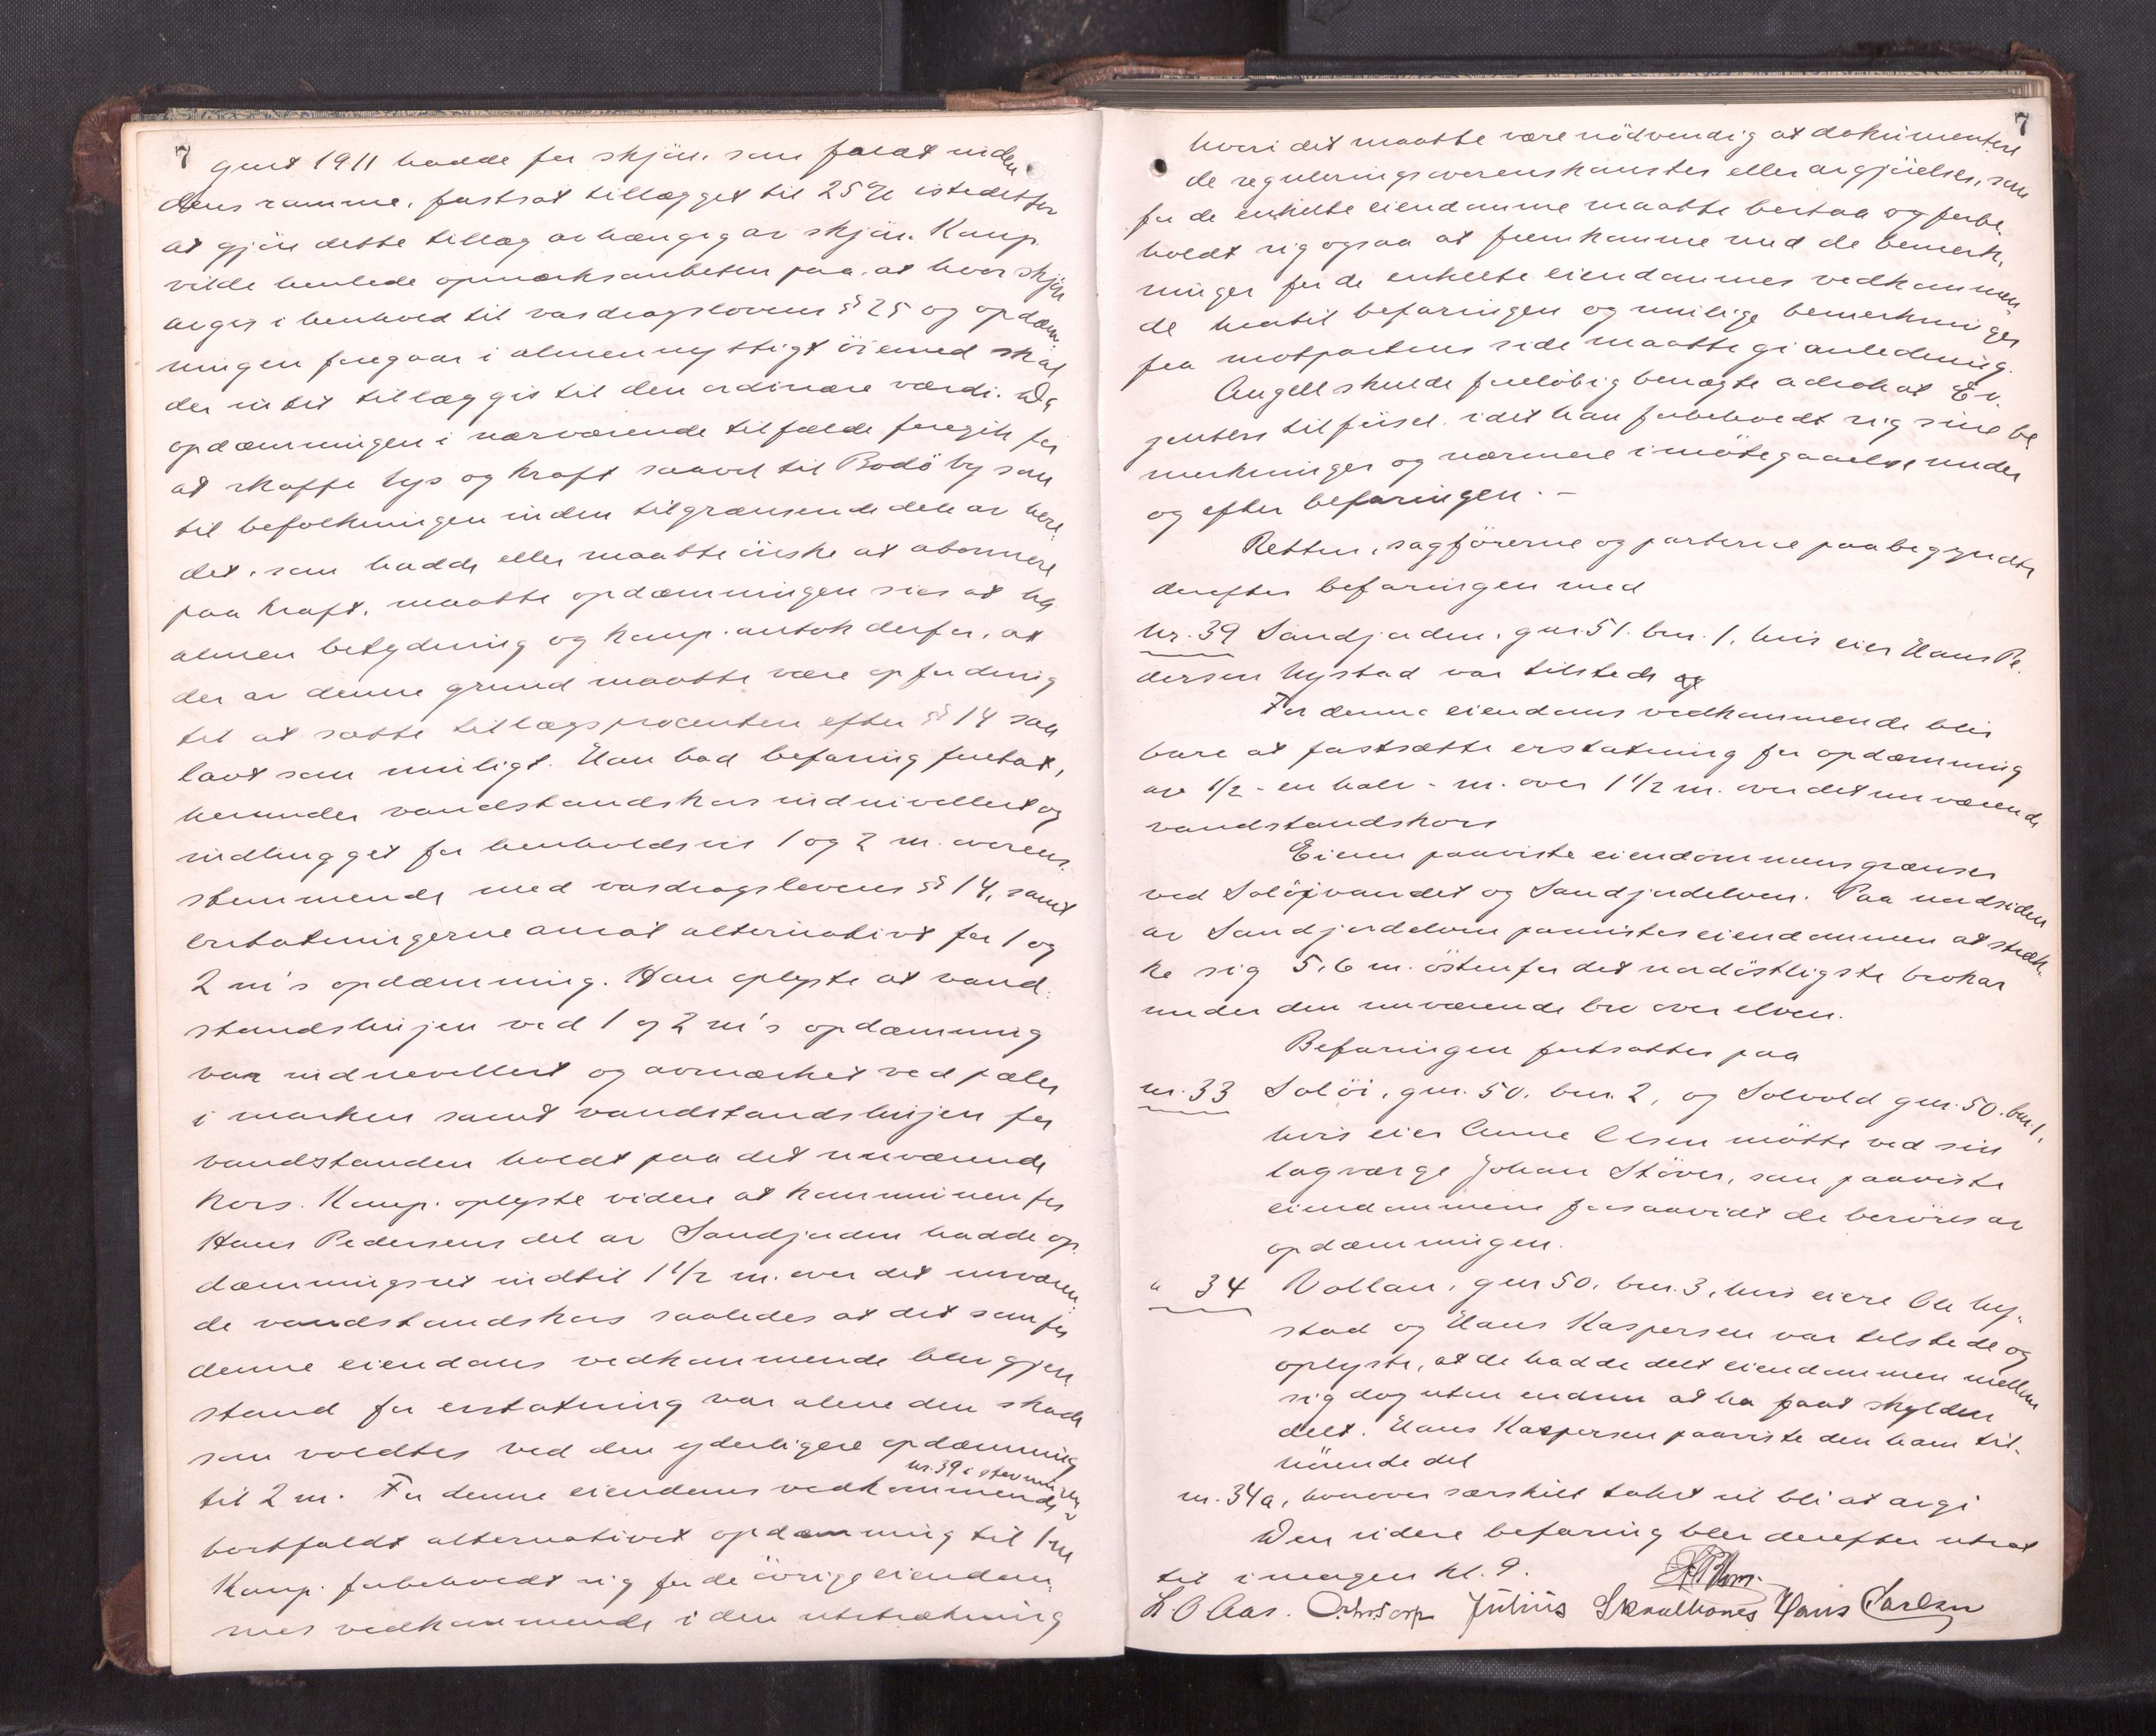 7
gust 1911 hadde for skjön, som faldt inden
dens ramme, fastsat tillægget til 25 % istedetfor
at gjöre dette tillæg avhængig av skjön. Komp.
vilde henlede opmerksomheten paa, at hvor skjön
avgis i henhold til vasdragslovens § 25 og opdæm,
ningen foregaar i almennyttigt öiemed skal
der intet tillægges til den ordinære værdi. Da
opdæmningen i nærværende tilfælde foregik for
at skaffe lys og kraft saavel til Bodö by som
til befolkningen inden tilgrænsende dele av here,
det, som hadde eller maatte önske at abonnere
paa kraft, maatte opdæmningen sies at ha
almen betydning og komp. antok derfor, at
der av denne grund maatte være opfordring
til at sætte tillægsprocenten efter § 14 saa
lavt som muligt. Han bad befaring foretat,
herunder vandstandskors indnivellert og
indhugget for henholdsvis 1 og 2 m. overens,
stemmende med vasdragslovens § 14, samt
erstatningerne ansat alternativt for 1 og
2 m's opdæmning. Han oplyste at vand,
standslinjen ved 1 og 2 m's opdæmning
var indnevellert og avmerket ved pæler
i marken samt vandstandslinjen for
vandstanden holdt paa det nuværende
kors. Komp. oplyste videre at kommunen for
Hans Pedersens del av Sandjorden hadde op,
dæmningsret indtil 1 1/2 m. over det nuværen,
de vandstandskors saaledes at det som for
denne eiendoms vedkommende blev gjen,
stand for erstatning var alene den skade
som voldtes ved den yderligere opdæmning
nr. 39 i stevningen
til 2 m. For denne eiendoms vedkommende
bortfaldt alternativet opdæmning til 1 m
Komp. forbeholdt sig for de övrige eiendom,
mes vedkommende i den utstrækning
7
hvori det maatte være nödvendig at dokumentere
de reguleringsoverenskomster eller avgjörelser, som
for de enkelte eiendomme maatte bestaa og forbe,
holdt sig ogsaa at fremkomme med de bemerk,
ninger for de enkelte eiendommes vedkommen,
de hvortil befaringen og mulige bemerkninger
fra motpartens side maatte gi anledning.
Angell skulde foreløbig benegte advokat Ev.
jenths tilförsel, idet han forbeholdt sig sine be
merkninger og nærmere imötegaaelse under
og efter befaringen. –
Retten, sagförerne og parterne paabegyndte
derefter befaringen med
Nr. 39 Sandjorden, gnr. 51. bnr. 1, hvis eier Hans Pe,
dersen Nystad var tilstede og
For denne eiendoms vedkommende blir
bare at fastsætte erstatning for opdæmning
av 1/2 - en halv - m. over 1 1/2 m. over det nuværende
vandstandskors
Eieren paaviste eiendommens grænser
ved Solöivandet og Sandjordelven. Paa nordsiden
av Sandjordelven paavistes eiendommen at stræk,
ke sig 5,6 m. östenfor det nordöstligste brokar
under den nuværende bro over elven.
Befaringen fortsattes paa
nr. 33 Solöi, gnr. 50. bnr. 2, og Solvold gnr. 50. bnr. 1,
hvis eier Anne Olsen mötte ved sin
lagværge Johan Stöver, som paaviste
eiendommene forsaavidt de beröres av
opdæmningen.
" 34 Vollan, gnr 50. bnr. 3, hvis eiere Ole Ny,
stad og Hans Kaspersen var tilstede og
oplyste, at de hadde delt eiendommen mellem
sig dog uten endnu at ha faat skylden
delt. Hans Kaspersen paaviste den ham til,
hörende del
nr. 34a, hvorover særskilt takst vil bli at avgi
Den videre befaring blev derefter utsat
til imorgen kl. 9.
L. O Aas. Julius Skaulhones Hans Carlsen